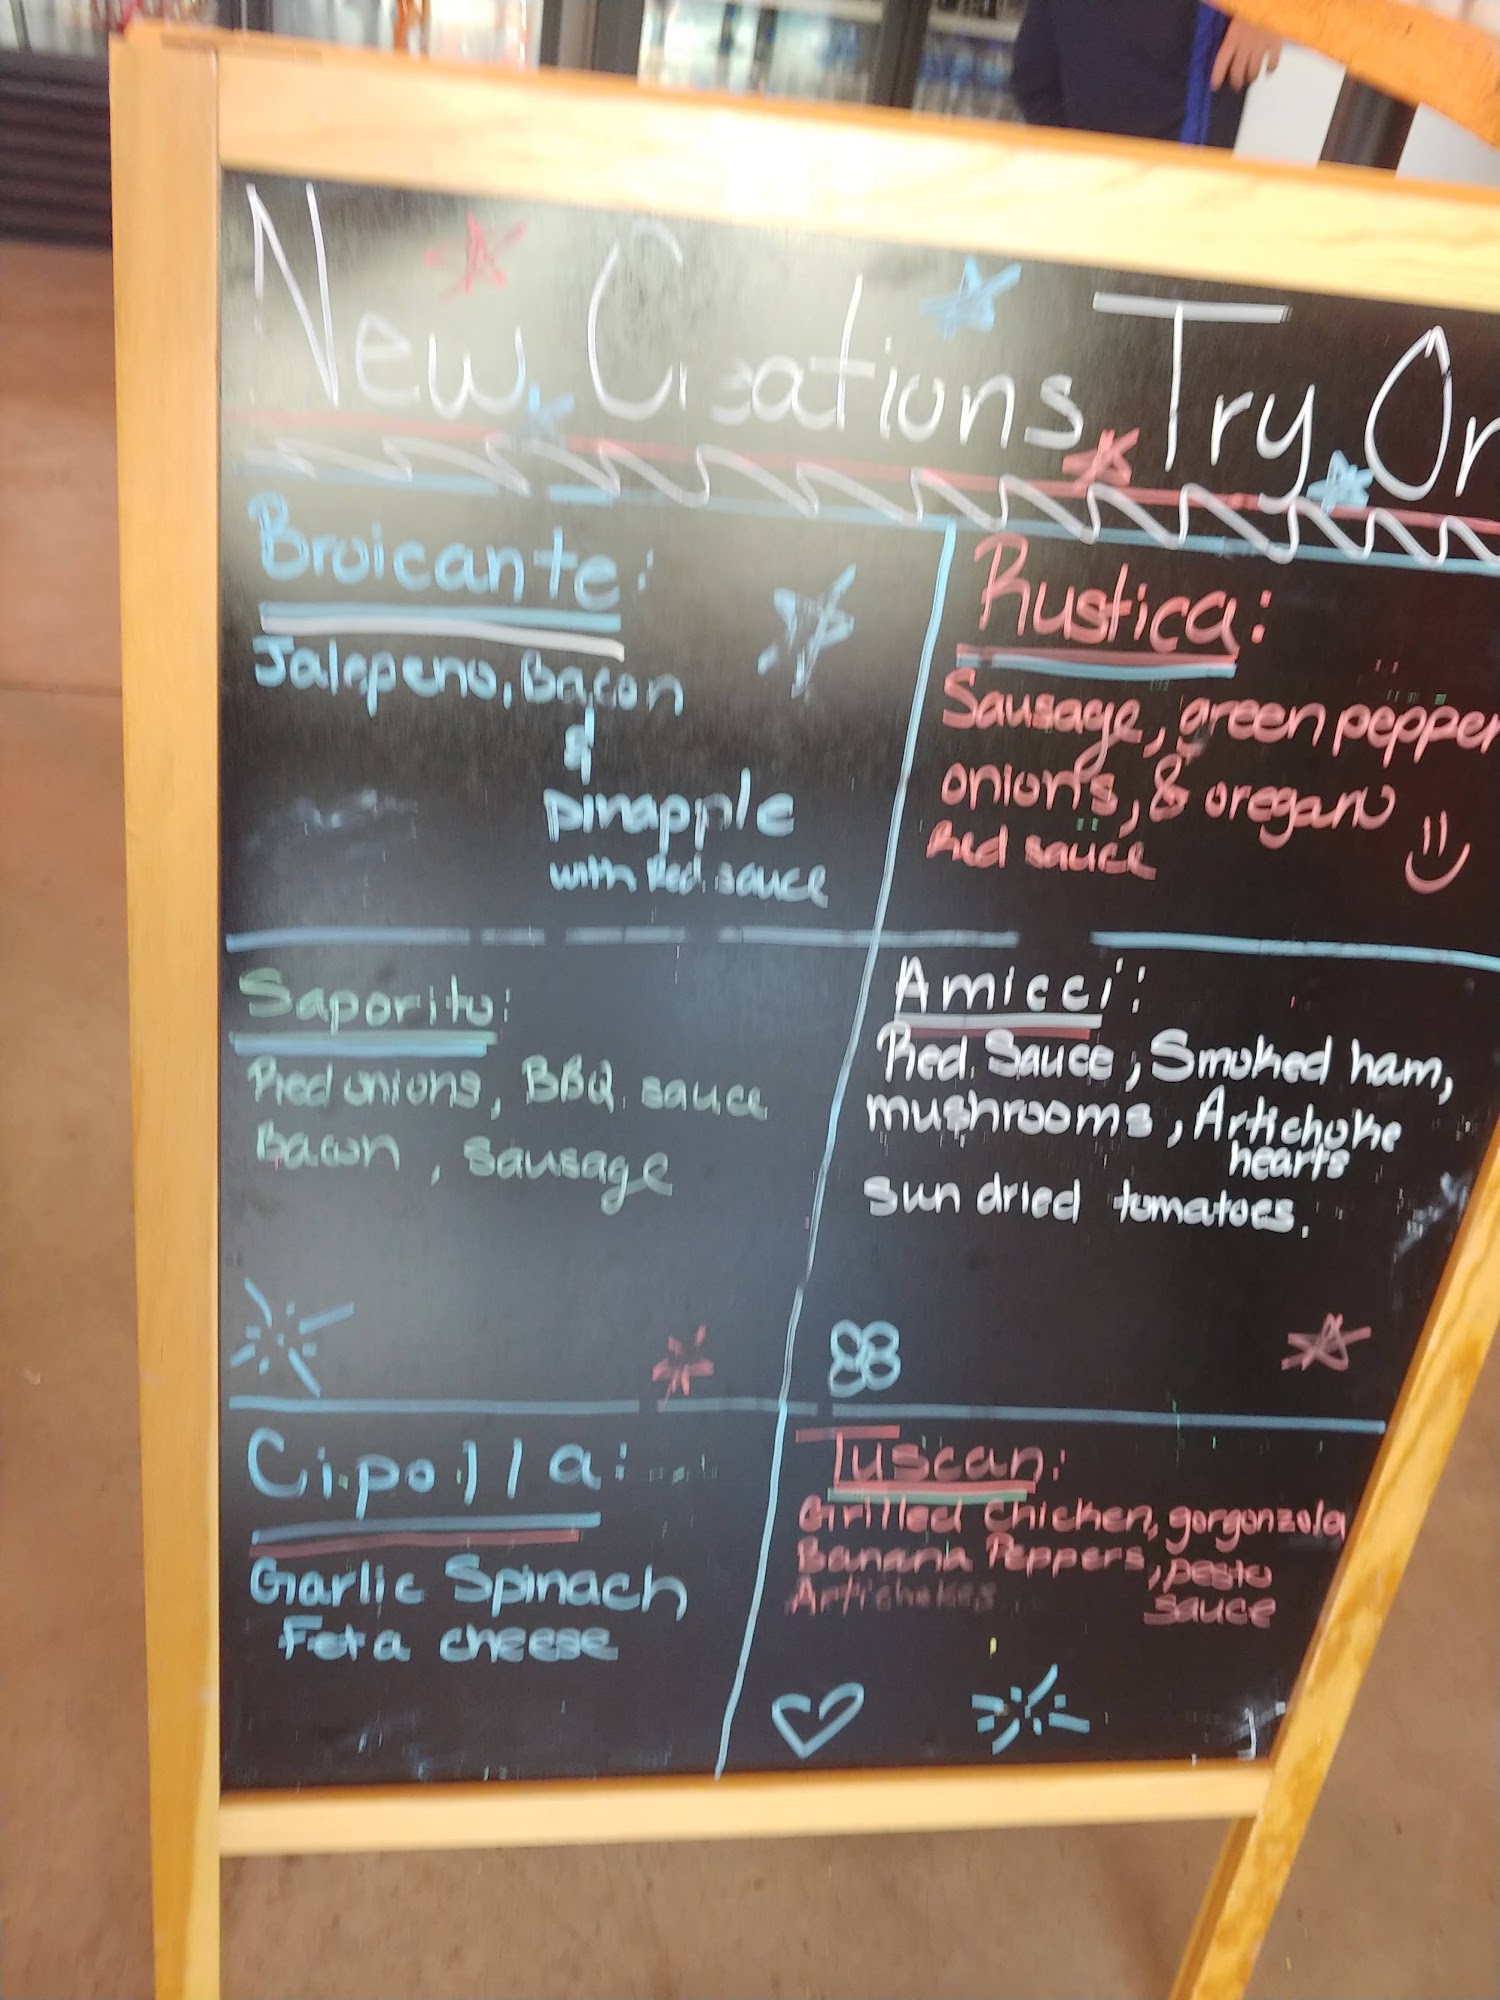 New Creations Try On
Broicante:
Jalepeno, Bacon
&
pinapple
with Red sauce
Rustica:
Sausage, green pepper
onions, & oregano
Red sauce
Saporito:
Red onions, BBQ sauce
Bacon, sausage
Amicci:
Red Sauce, Smoked ham,
mushrooms, Artichoke
hearts
sun dried tomatoes.
Cipolla:
Garlic Spinach
Feta cheese
Tuscan:
Grilled Chicken, gorgonzola
Banana Peppers, pesto
Artichokes sauce